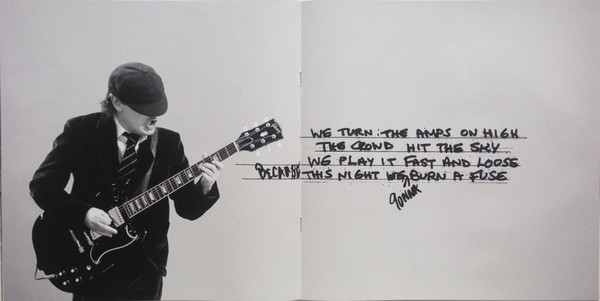 WE TURN :THE AMPS ON HIGH
THE CROWD HIT THE SKY
WE PLAY IT FAST AND LOOSE
BECAUSE THIS NIGHT WE BURN A FUSE
gonna